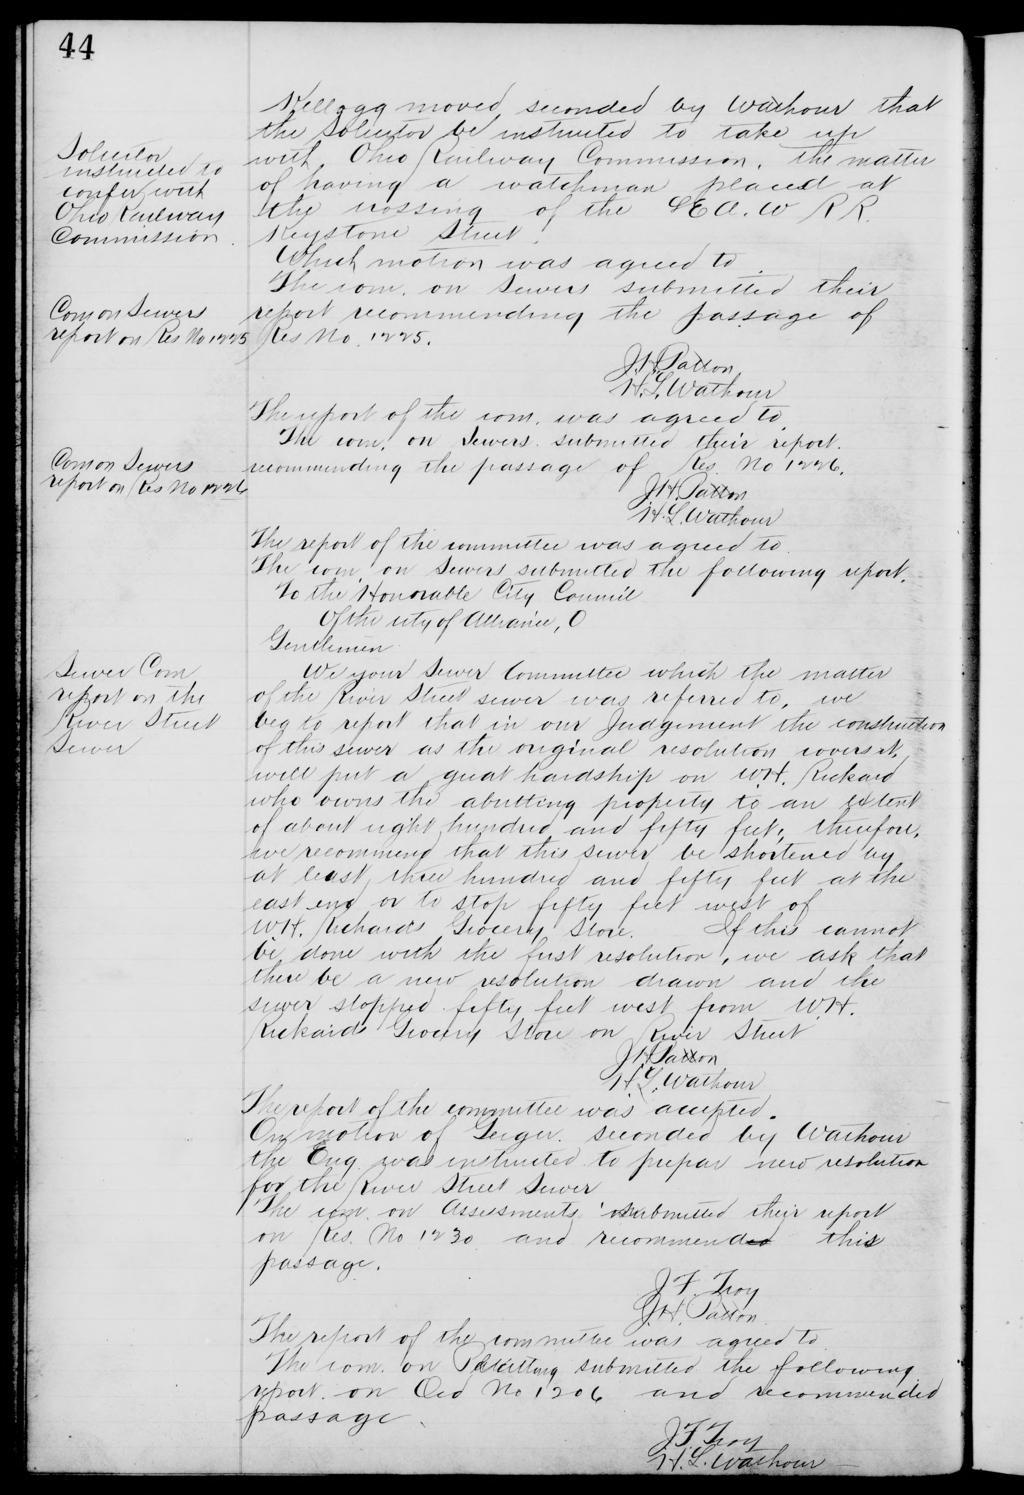 44
Kellogg moved, seconded by Wathour that
the Solicitor be instructed to take up
with Ohio Railway Commission, the matter
of having a watchman placed at
the crossing of the L E A. W R R.
Keystone Street.
Solicitor
instructed to
confer with
Ohio Railway
Commission.
Which motion was agreed to.
The com. on Sewers submitted their
report recommending the passage of
Res No. 1225.
Com on Sewers
report on Res No 1225
J. H. Patton
H. L. Wathour
The report of the com. was agreed to.
The com. on Sewers submitted their report.
recommending the passage of Res. No 1226.
Com on Sewers
report on Res No 1226
J. H. Patton
H. L. Wathour
The report of the committee was agreed to.
The com. on Sewers submitted the following report.
To the Honorable City Council
Of the city of Alliance, O
Gentlemen
Sewer Com
report on the
River Street
Sewer
We your Sewer Committee which the matter
of the River Street sewer was referred to, we
beg to report that in our Judgement the construction
of this sewer as the original resolution covers it,
will put a great hardship on W.H. Rickard
who owns the abutting property to an extent
of about eight hundred and fifty feet, therefore,
we recommend that this sewer be shortened by
at least, three hundred and fifty feet at the
east end or to stop fifty feet west of
W.H. Richards Grocery Store. If this cannot
be done with the first resolution, we ask that
there be a new resolution drawn and the
sewer stopped fifty feet west from W.H.
Rickards Grocery Store on River Street
J. H. Patton
H. L. Wathour
The report of the committee was accepted.
On motion of Geiger. seconded by Wathour
the Eng. was instructed to prepar new resolution
for the River Street Sewer
The com. on Assessments submitted their report
on Res. No 1230 and recommend this
passage.
J. F. Troy
J. H. Patton.
The report of the committee was agreed to
The com. on submitted the following
report. on Ord No 1206 and recommended
passage.
J. F. Troy
H. L. Wathour